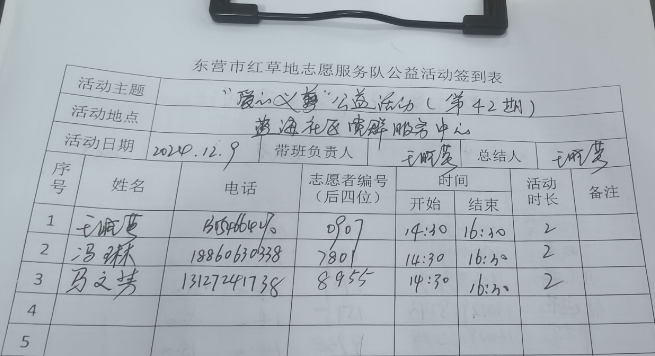 东营市红草地志愿服务队公益活动签到表
活动主题 "爱心义剪"公益活动(第42期)
活动地点 社区党群服务中心
活动日期 2024.12.9 带班负责人 王 总结人 王
序号 姓名 电话 志愿者编号(后四位) 时间 活动时长 备注
开始 结束
1 王 0907 14:30 16:30 2
2 冯 18860630338 7801 14:30 16:30 2
3 马文 13127241738 8955 14:30 16:30 2
4
5